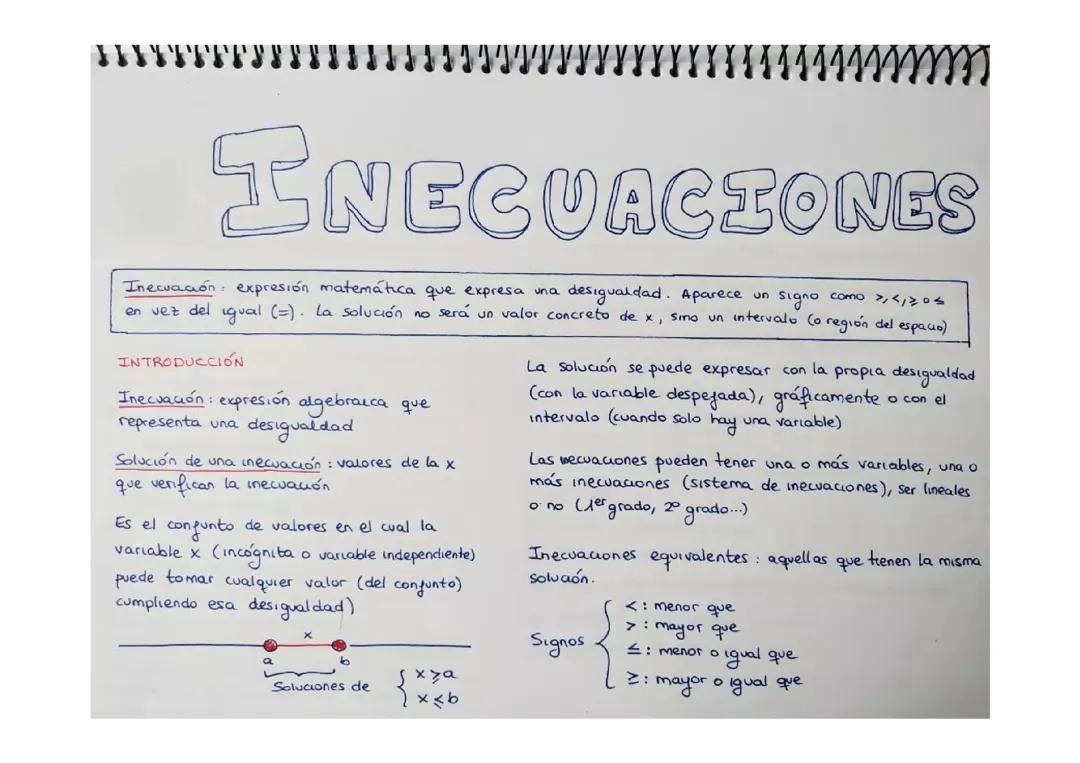 INECUACIONES
Inecuación: expresión matemática que expresa una desigualdad. Aparece un signo como >, <, ≥ o ≤
en vez del igual (=). La solución no será un valor concreto de x, sino un intervalo (o región del espacio)
INTRODUCCIÓN
Inecuación: expresión algebraica que
representa una desigualdad
Solución de una inecuación: valores de la x
que verifican la inecuación
Es el conjunto de valores en el cual la
variable x (incógnita o variable independiente)
puede tomar cualquier valor (del conjunto)
cumpliendo esa desigualdad)
x
a b
Soluciones de { x ≥ a
x ≤ b
La solución se puede expresar con la propia desigualdad
(con la variable despejada), gráficamente o con el
intervalo (cuando solo hay una variable)
Las inecuaciones pueden tener una o más variables, una o
más inecuaciones (sistema de inecuaciones), ser lineales
o no (1er grado, 2º grado...)
Inecuaciones equivalentes: aquellas que tienen la misma
solución.
Signos {
<: menor que
>: mayor que
≤: menor o igual que
≥: mayor o igual que